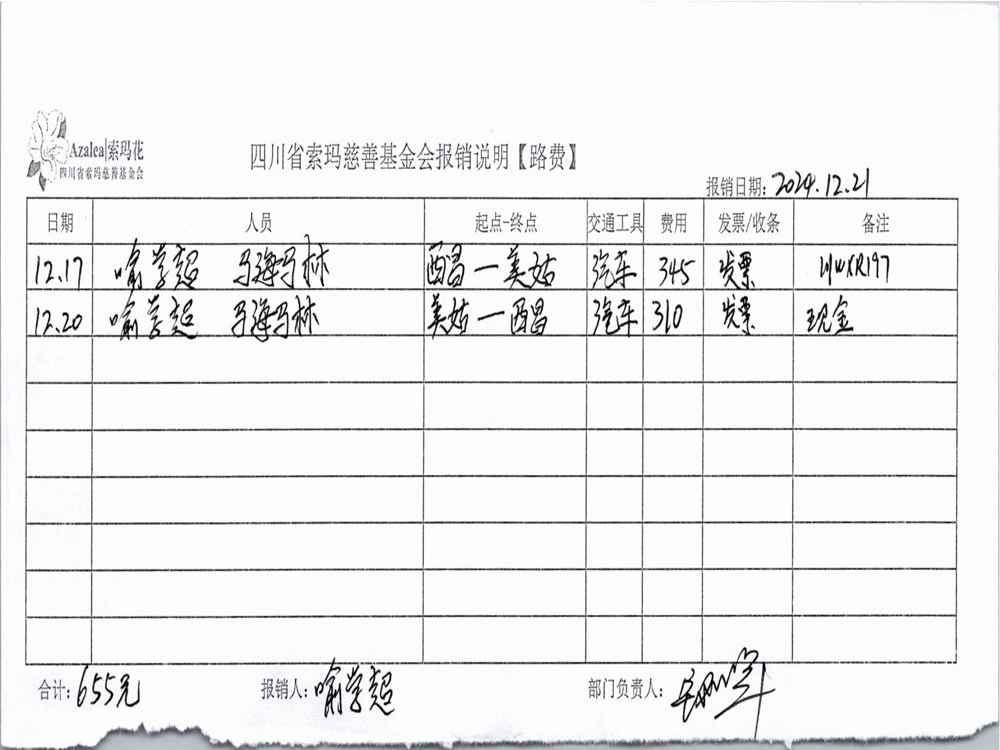 Azalea|索玛花
四川省索玛慈善基金会
四川省索玛慈善基金会报销说明【路费】
报销日期：2024.12.21
日期 人员 起点-终点 交通工具 费用 发票/收条 备注
12.17 喻学超 马海马林 西昌—美姑 汽车 345 发票 川WXR197
12.20 喻学超 马海马林 美姑—西昌 汽车 310 发票 现金
合计：655元 报销人：喻学超 部门负责人：